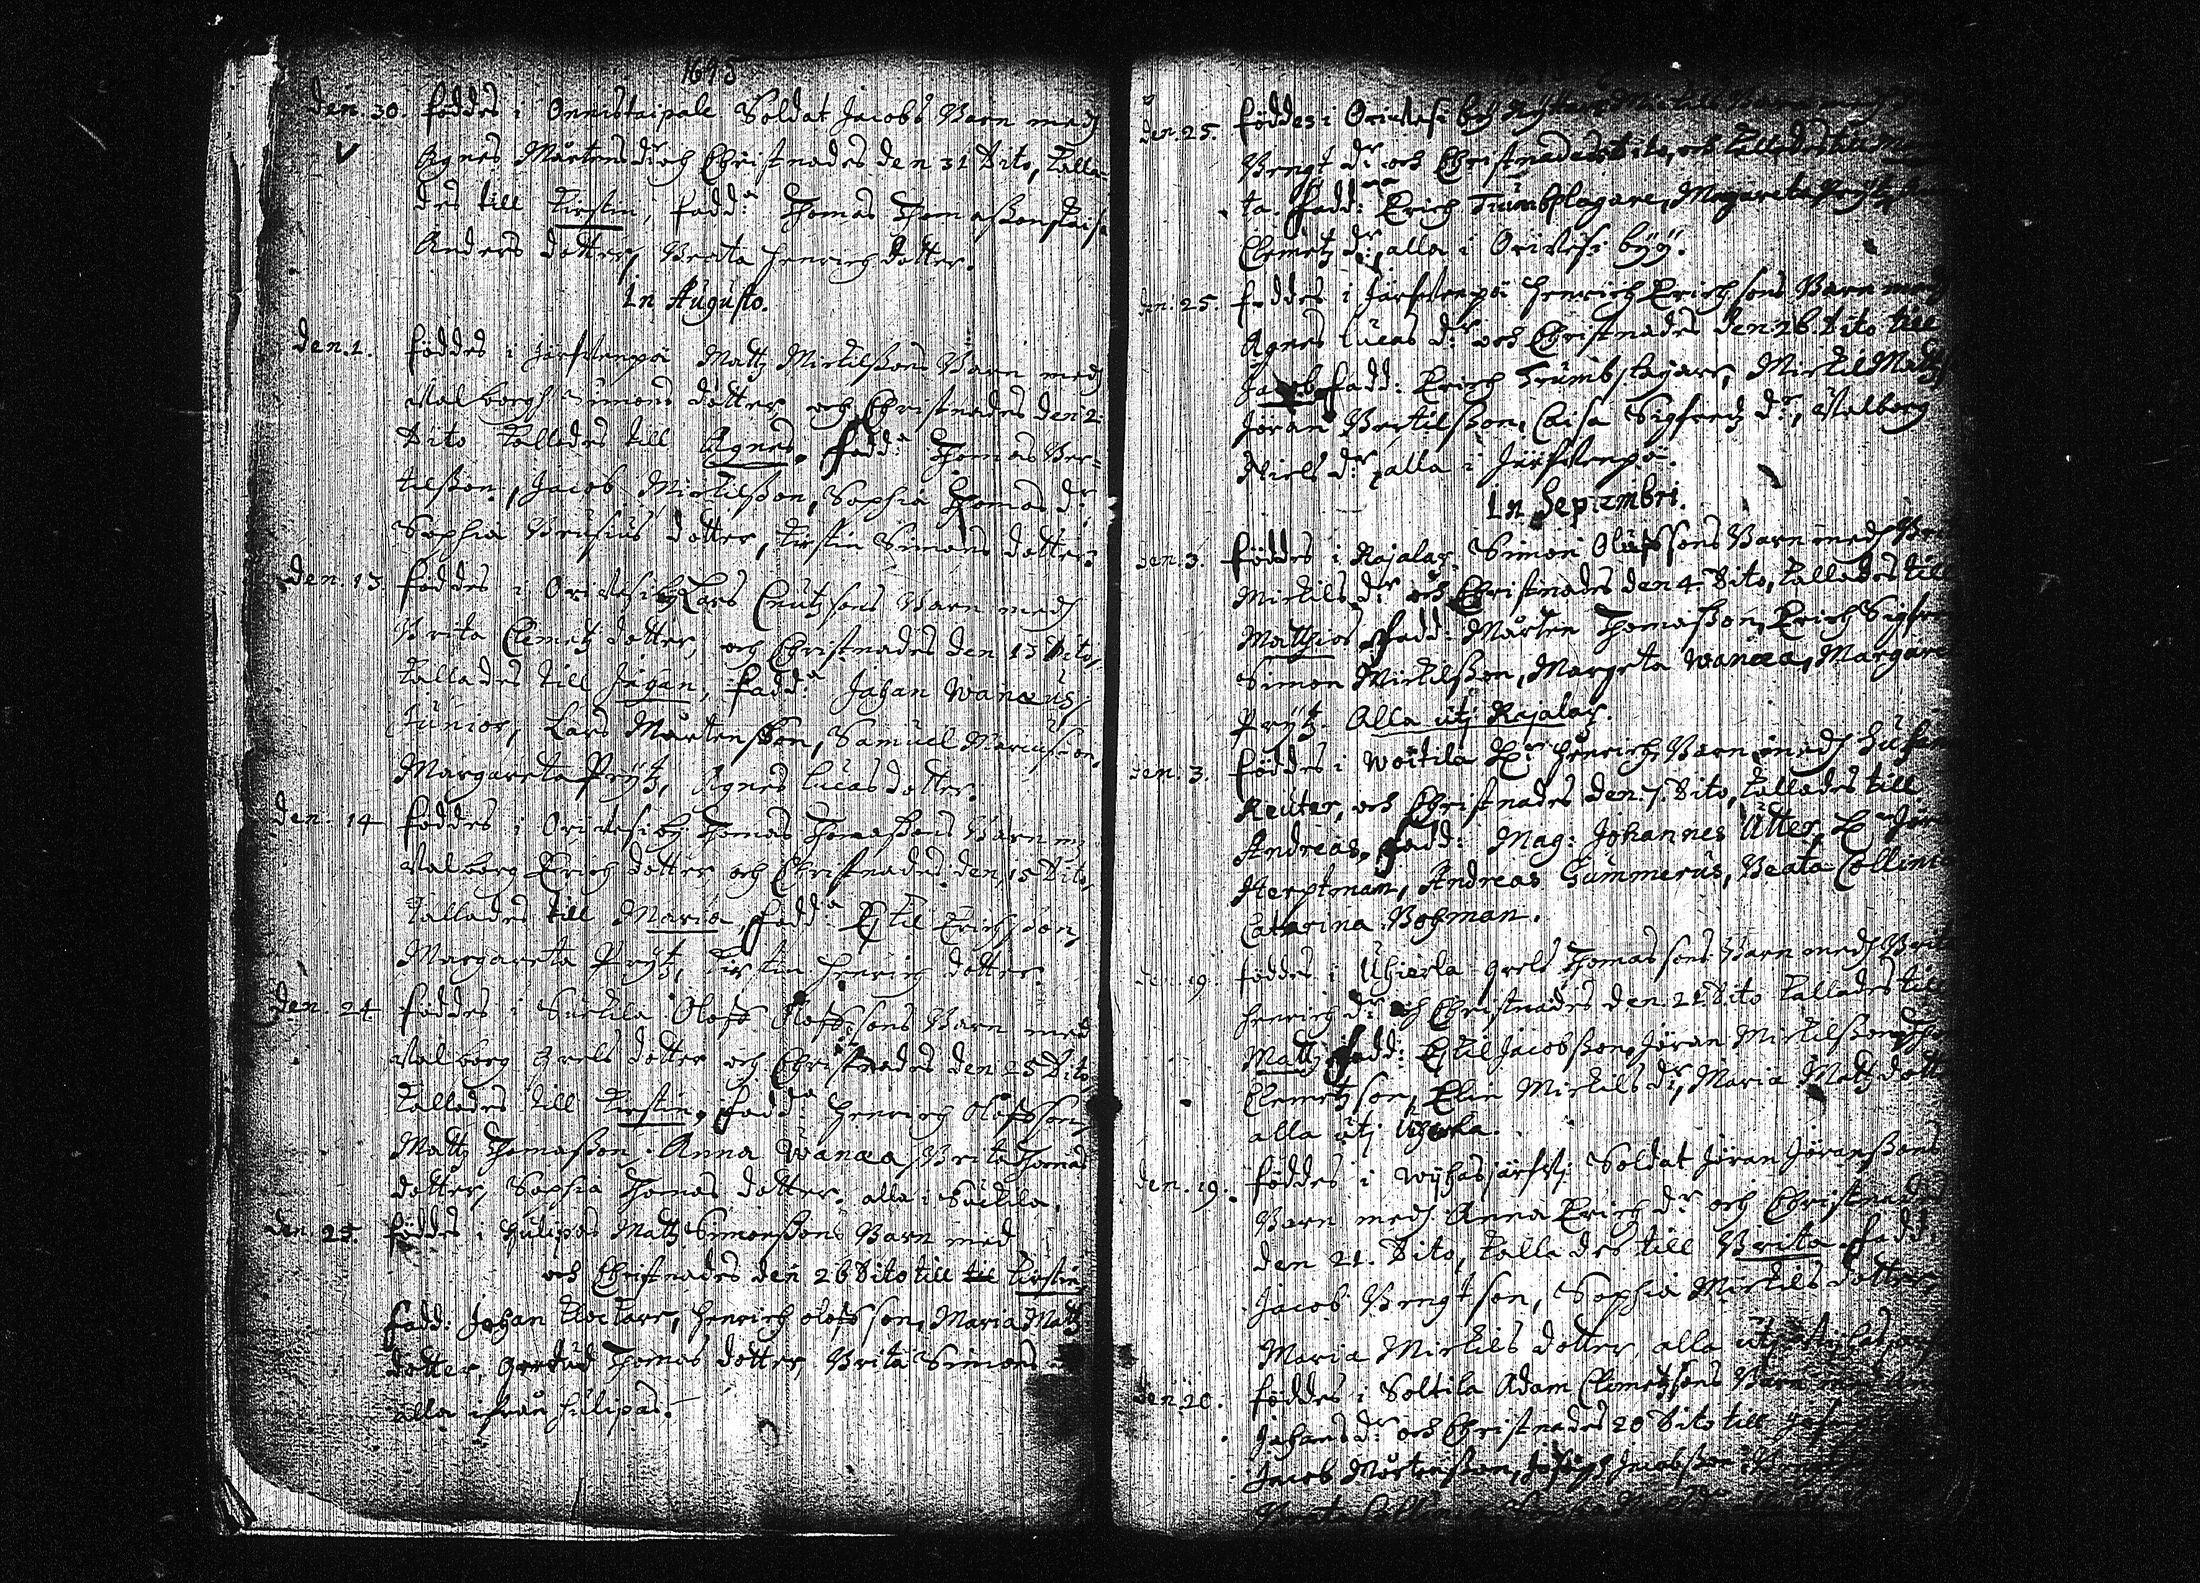 1695
den. 30. föddes i Onnistaipale Soldat Jacobs Barn medh
Agnes Mårtens dr och Christnades den 31 Dito, kalla-
des till Kirstin, fadd: Thomas Thomasson
Anders dotter, Beata Henrich dotter.
In Augusto.
den. 1. föddes i Järfvenpä Matz Mickilssons Barn medh
Valborgh Simons dotter och Christnades den 2.
Dito kallades till Agnes. fadd: Thomas Ber-
tilsson, Jacob Mickilsson, Sophia Thomas dr,
Sophia Brusius dotter, Kirstin Simons dotter.
den. 13 föddes i Orivesi by Lars Cnutzsons Barn medh
Brita Clemetz dotter, och Christnades den 13 Dito,
kallades till Johan, fadd: Johan Wanæus
Junior, Lars Mårtensson, Samuel
Margareta Prytz, Agnes Lucas dotter.
den. 14 föddes i Orivesi by Thomas Thomassons Barn m
Valborg Erich dotter och Christnades den 15 Dito,
kallades till Maria, fadd: Eskil Erichsson,
Margareta Prytz, Kirstin Henrich dotter.
den. 24 föddes i Säckila Oloff Oloffssons Barn med
Valborg Grels dotter och Christnades den 25 Dito
kallades till Kirstin, fadd: Henrich Olofsson,
Matz Thomasson, Anna Wanæa, Brita Thomas
dotter, Sophia Thomas dotter. alla i Säckila.
den. 25. föddes i Hulipas Matz Simonssons Barn med
och Christnades den 26 Dito till till Kirstin
fadd: Johan Klockare, Henrich Olofsson, Maria Matz
dotter, Gertud Thomas dotter, Brita Simons
alla ifrån Hulipas.
den. 25. föddes i Orivesi by Mickils Barn
Bengt dr och Christnades Dito, och kallades till
ta. fadd: Erich Trumbslagare, Margareta Prytz,
Clemetz dr, alla i Orivesi byy.
den. 25. föddes i Järfvenpä Henrich Erichsons Barn medh
Agnes Lucas dr och Christnades den 26 Dito till
Jacob fadd: Erich Trumbslagare, Mickil Matz
Jöran Bertilsson, Caisa Sigfredz dr, Valborg
Niels dr, alla i Järfvenpä.
In Septembri.
den. 3. föddes i Rajalax Simon Olufssons Barn medh
Mickils dr och Christnades den 4 Dito, kallades till
Matthias, fadd: Mårten Thomasson, Erich Sigfre
Simon Mickilsson, Margeta Wanæa, Margare
Prytz. Alla utj Rajalax.
den. 3. föddes i Woitila Hr Henrichs Barn medh Susan
Reuter, och Christnades den 7. Dito, kallades till
Andreas, fadd: Mag: Johannes Utter, Hr Jöra
Herptman, Andreas Gummerus, Beata Collinia
Catarina Bohman.
den. 19. föddes i Uhierla Grels Thomassons Barn medh Brit
Henrich dr och Christnades den 21 Dito kallades till
Matz fadd: Eskil Jacobsson, Jöran Mickilsson,
Clemetzson, Elin Mickils dr, Maria Matz dott
alla utj Uhierla.
den. 19. föddes i Wyhasjärfvi Soldat Jöran Jöranssons
Barn medh Anna Erich dr och Christnades
den 21. Dito, kallades till Brita fadd:
Jacob Bengtson, Sophia Mickils dotter
Maria Mickils dotter, alla utj
den. 20. föddes i Soltila Adam Clemetzsons Barn
Johans dr och Christnades 20 Dito till Johan
Jacob Mårtensson, Jacobsson